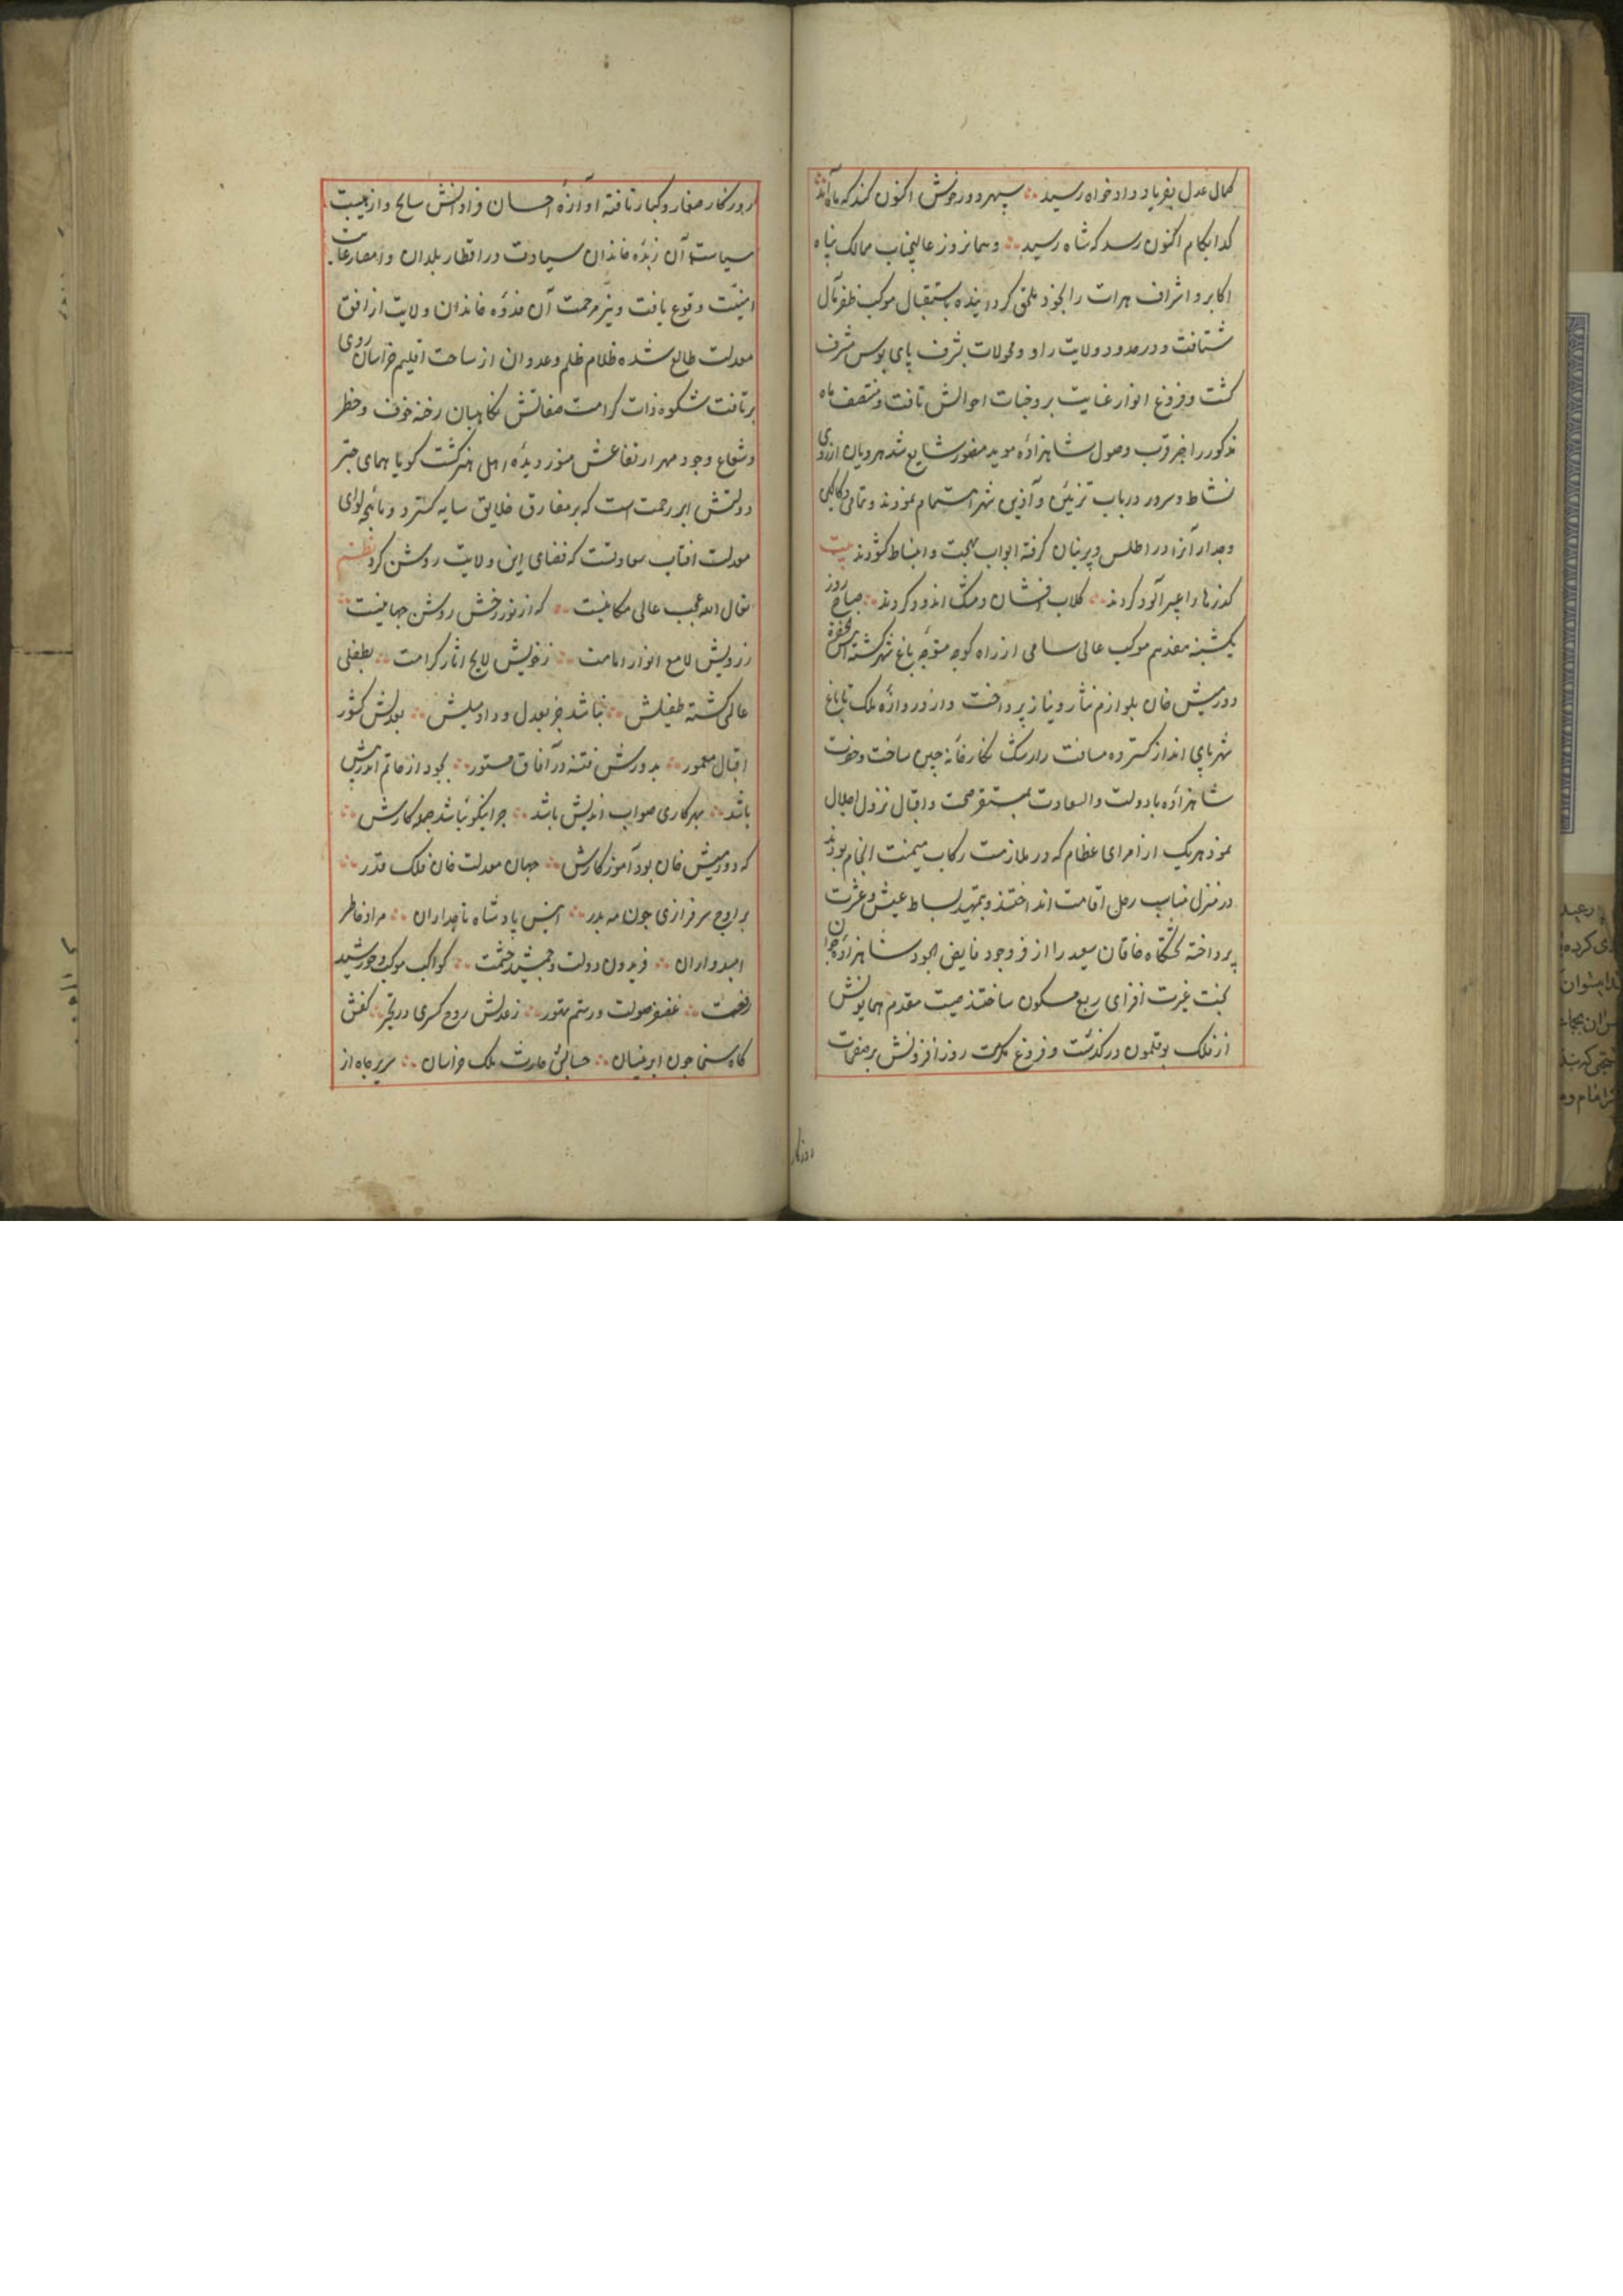 کمال عدل بفریاد دادخواه رسید سپهر دور خوش اکنون کند که ماه آمد
کدا بکام اکنون رسد که شاه رسید و همانروز عالیجناب ممالک پناه
اکابر و اشراف هرات را بخود ملحق کردانیده باستقبال موکب ظفرمآل
شتافت و در حدود ولایت راو و محولات بشرف پای بوس مشرف
کشت و فروغ انوار عنایت بر وجنات احوالش تافت و منتصف ماه
مذکور را خبر قرب وصول شاهزاده موید منصور شایع شد هرویان از روی
نشاط و سرور در باب تزیین و آذین شهر اهتمام نمودند و تمامی دکاکین
و جدار آنرا در اطلس و پرنیان کرفته ابواب بهجت و انبساط کشودند بیت
کذرها را عبیر آلود کردند کلاب افشان و مشک اندود کردند صباح روز
یکشنبه مقدم موکب عالی سامی از راه کوچه متوجه باغ شهر کشته
دورمیش خان بلوازم نثار و نیاز پرداخت و از دروازه ملک تا باغ
شهر پای انداز کسترده مسافت را رشک نکارخانه چین ساخت و حضرت
شاهزاده با دولت والسعادت بمستقر حکمت و اقبال نزول اجلال
نمود هریک از امرای عظام که در ملازمت رکاب میمنت انجام بودند
در منزل مناسب رحل اقامت انداختند و بتمهید بساط عیش و عشرت
پرداخته تختکاه خاقان سعید را از فر وجود فایض الجود شاهزاده جوان
بخت غیرت افزای ربع مسکون ساختند صیت مقدم همایونش
از فلک بوقلمون درکذشت و فروغ مکرمت روزافزونش بر صفحات
روزکار
روزکار صغار و کبار تافته اوآزهٔ احسان فراوانش سایح و از هیبت
سیاست آن زبدهٔ خاندان سیادت در اقطار بلدان و امصار غایت
امنیت وقوع یافت و نیر مرحمت آن قدوه خاندان ولایت از افق
معدلت طالع شده ظلام ظلم و عدوان از ساحت اقلیم خراسان روی
برتافت شکوه ذات کرامت صفاتش نکاهبان رخنه خوف و خطر
و شعاع وجود مهر ارتفاعش منور دیدهٔ اهل هنر کشت کویا همای چتر
دولتش ابر رحمت است که بر مفارق خلایق سایه کسترد و ماهچه لوای
معدلت افتاب سعادتست که فضای این ولایت روشن کرد نظم
تعال الله عجب عالی مکانیست که از نور رخش روشن جهانیست
ز رویش لامع انوار امامت ز خویش لایح اثار کرامت بطفلی
عالمی کشته طفیلش نباشد جز بعدل و داد میلش بعدلش کشور
اقبال معمور بدورش فتنه در آفاق مستور بجود از حاتم اندر پیش
باشد بهر کاری صواب اندیش باشد چرا نیکو نباشد جمله کارش
که دورمیش خان بود آموزکارش جهان معدلت خان فلک قدر
بر اوج سرفرازی چون مه بدر انیس پادشاه تاجداران مراد خاطر
امیدواران فریدون دولت و جمشید حشمت کواکب موکب و خورشید
رفعت غضنفر صولت و رستم تهور ز عدلش روح کسری در تحیر کفش
کاه سخا چون ابر نیسان حسابش حارث ملک خراسان سریر جاه از